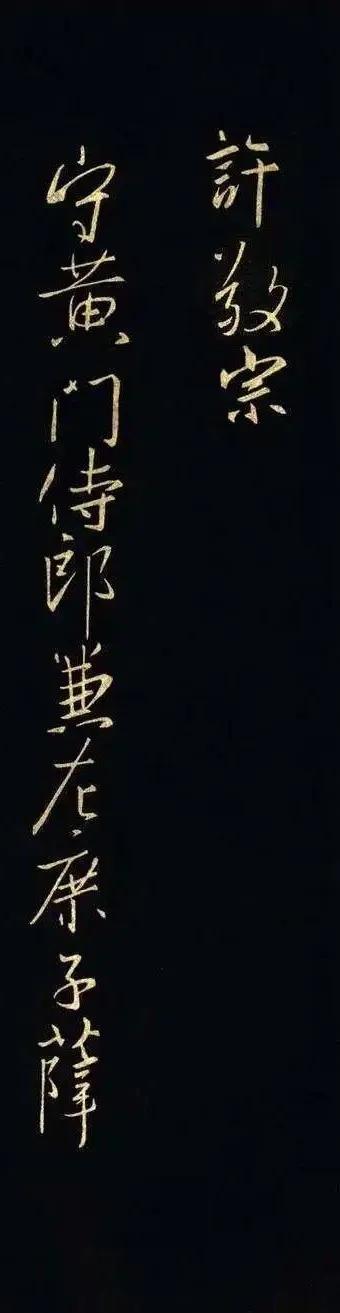 許敬宗
守黄門侍郎兼左庶子薛